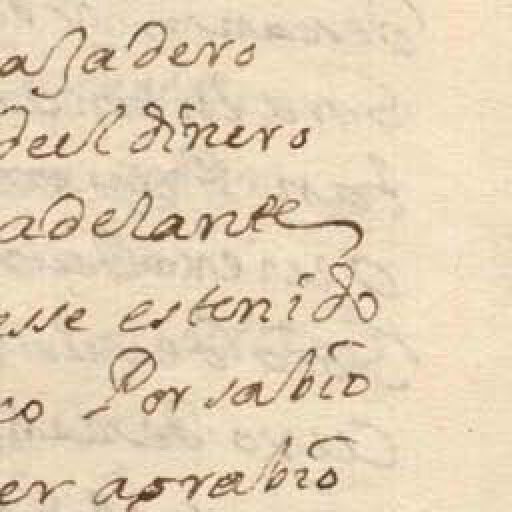 azadero
deel dinero
adelante
esse estenido
co Por sabio
er agrabio